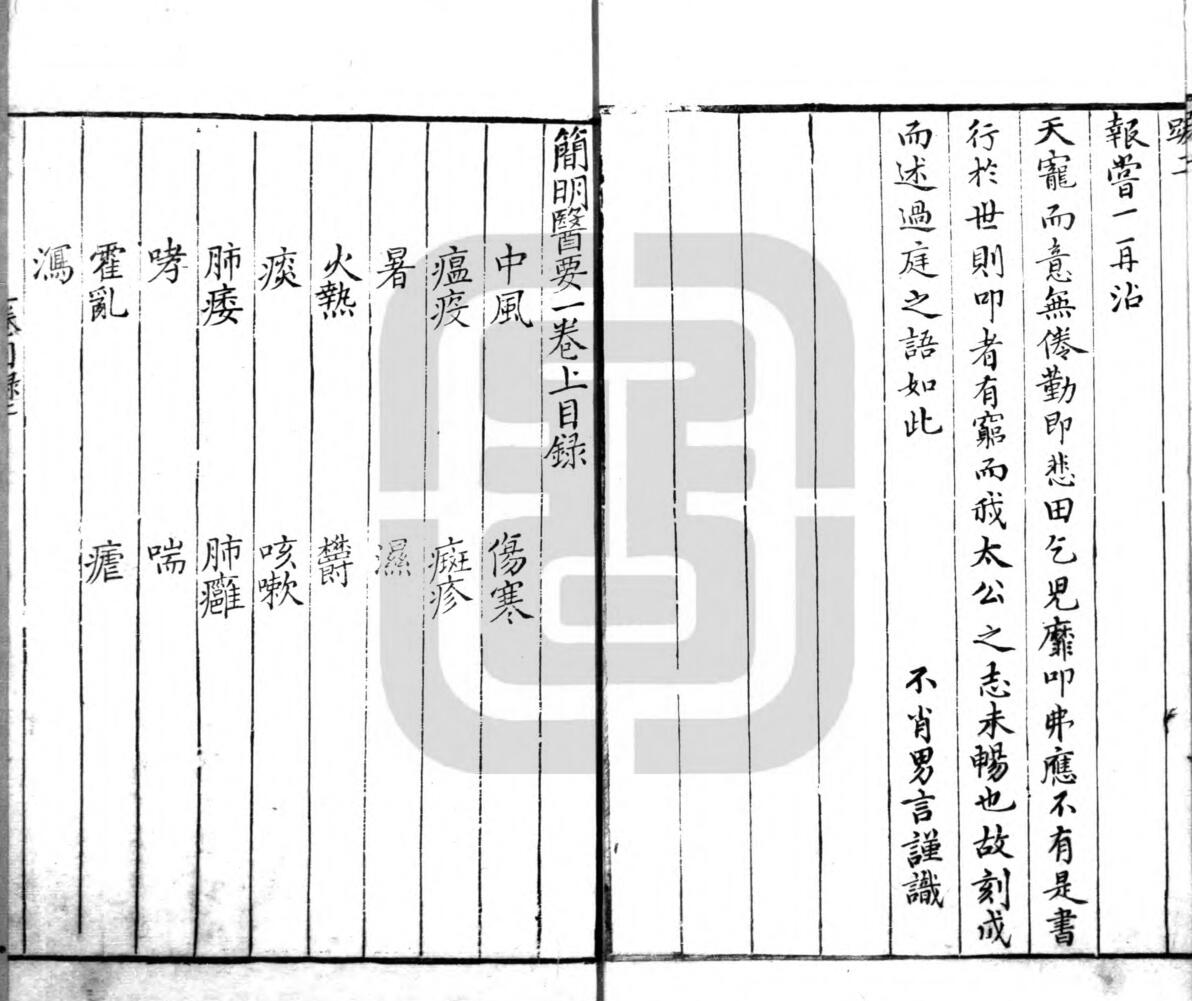 跋二
報嘗一再沾
天寵而意無倦勤即悲田乞兒靡叩弗應不有是書
行於世則叩者有窮而我太公之志未暢也故刻成
而述過庭之語如此
不肖男言謹識
簡明醫要一卷上目録
中風 傷寒
瘟疫 癍疹
暑 濕
火熱 欝
痰 咳嗽
肺痿 肺癰
哮 喘
霍亂 瘧
瀉
一卷目録